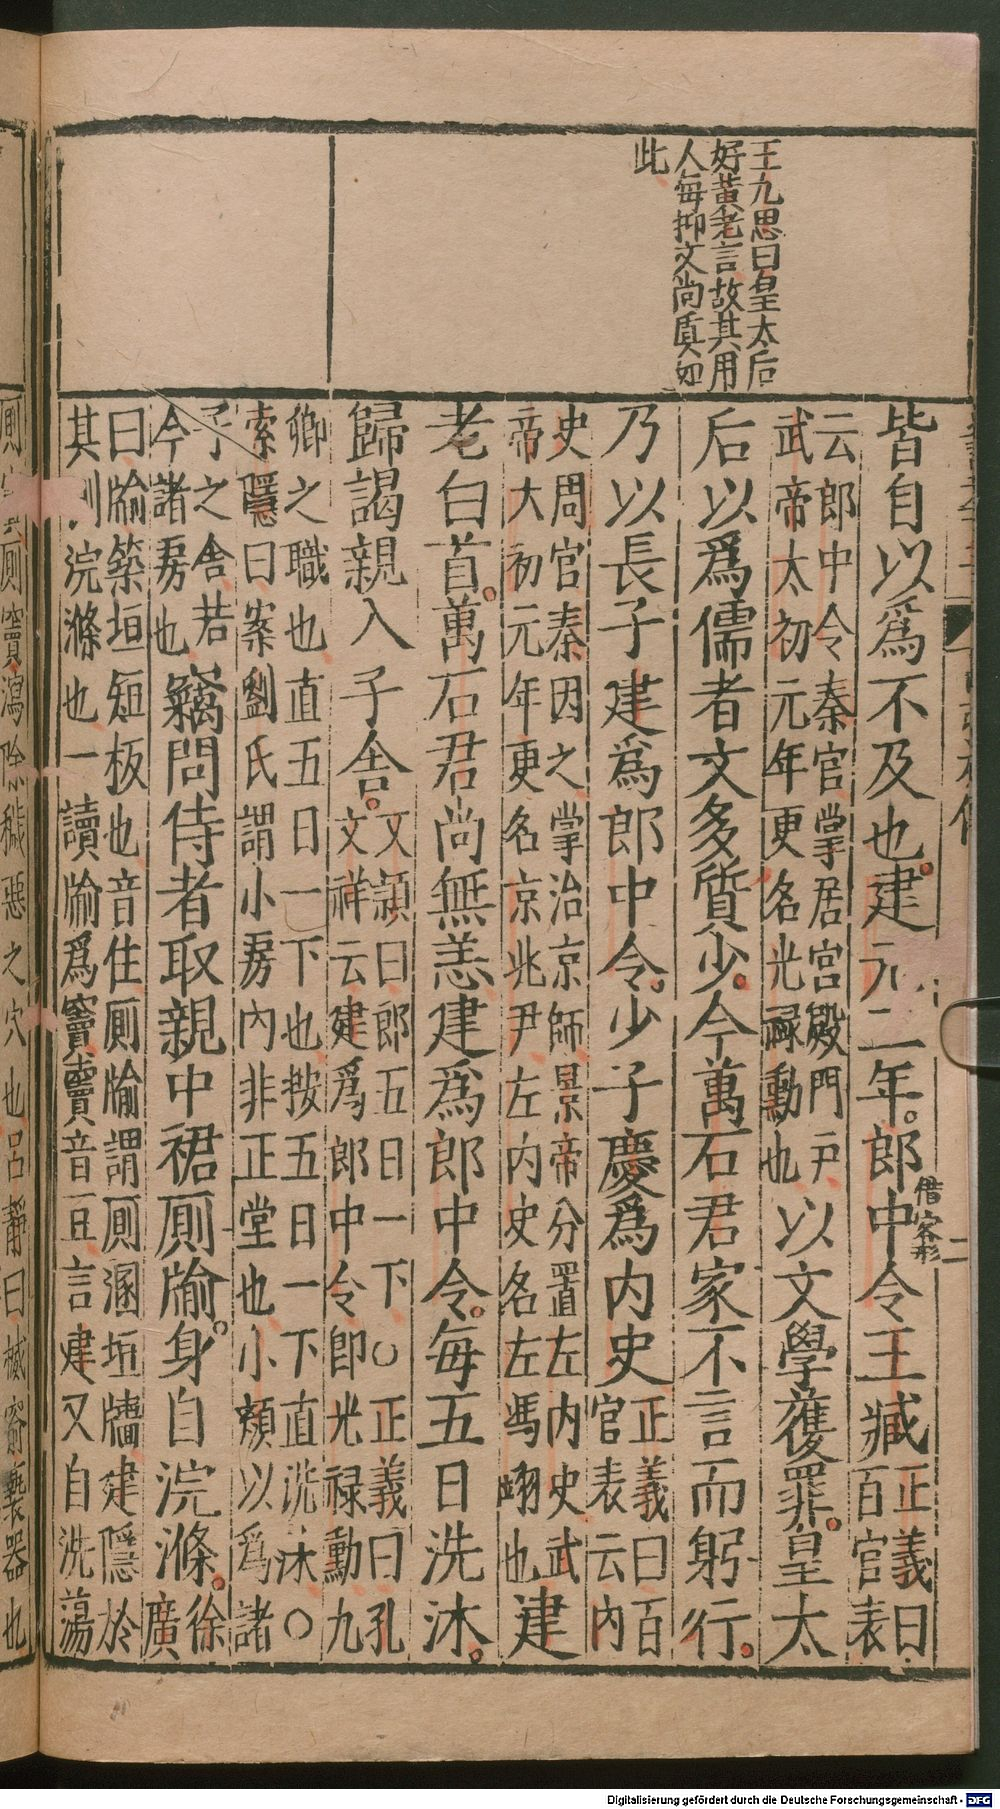 王九思曰皇太后
好黃老言故其用
人每抑文尚質如
此
皆自以爲不及也。建元二年。郎中令王臧正義曰
百官表
云郎中令秦官掌居宮殿門戶
武帝太初元年更名光祿勳也以文學獲罪。皇太
后以爲儒者文多質少。今萬石君家不言而躬行。
乃以長子建爲郎中令。少子慶爲内史正義曰百
官表云内
史周官秦因之掌治京師景帝分置左内史武
帝大初元年更名京兆尹左内史名左馮翊也建
老白首。萬石君尚無恙建爲郎中令。每五日洗沐。
歸謁親入子舍。文潁曰郎五日一下○正義曰孔
文祥云建爲郎中令即光祿勳九
卿之職也直五日一下也按五日一下直洗沐○
索隱曰案劉氏謂小房内非正堂也小顏以爲諸
子之舍若
今諸房也竊問侍者取親中裙廁牏。身自浣滌。徐
廣
曰牏築垣短板也音住廁牏謂廁溷垣牆建隱於
其側浣滌也一讀牏爲竇竇音豆言建又自洗蕩
借客形
二
廁竇瀉除穢惡之穴也呂靜曰楲窬褻器也
Digitalisierung gefördert durch die Deutsche Forschungsgemeinschaft - DFG